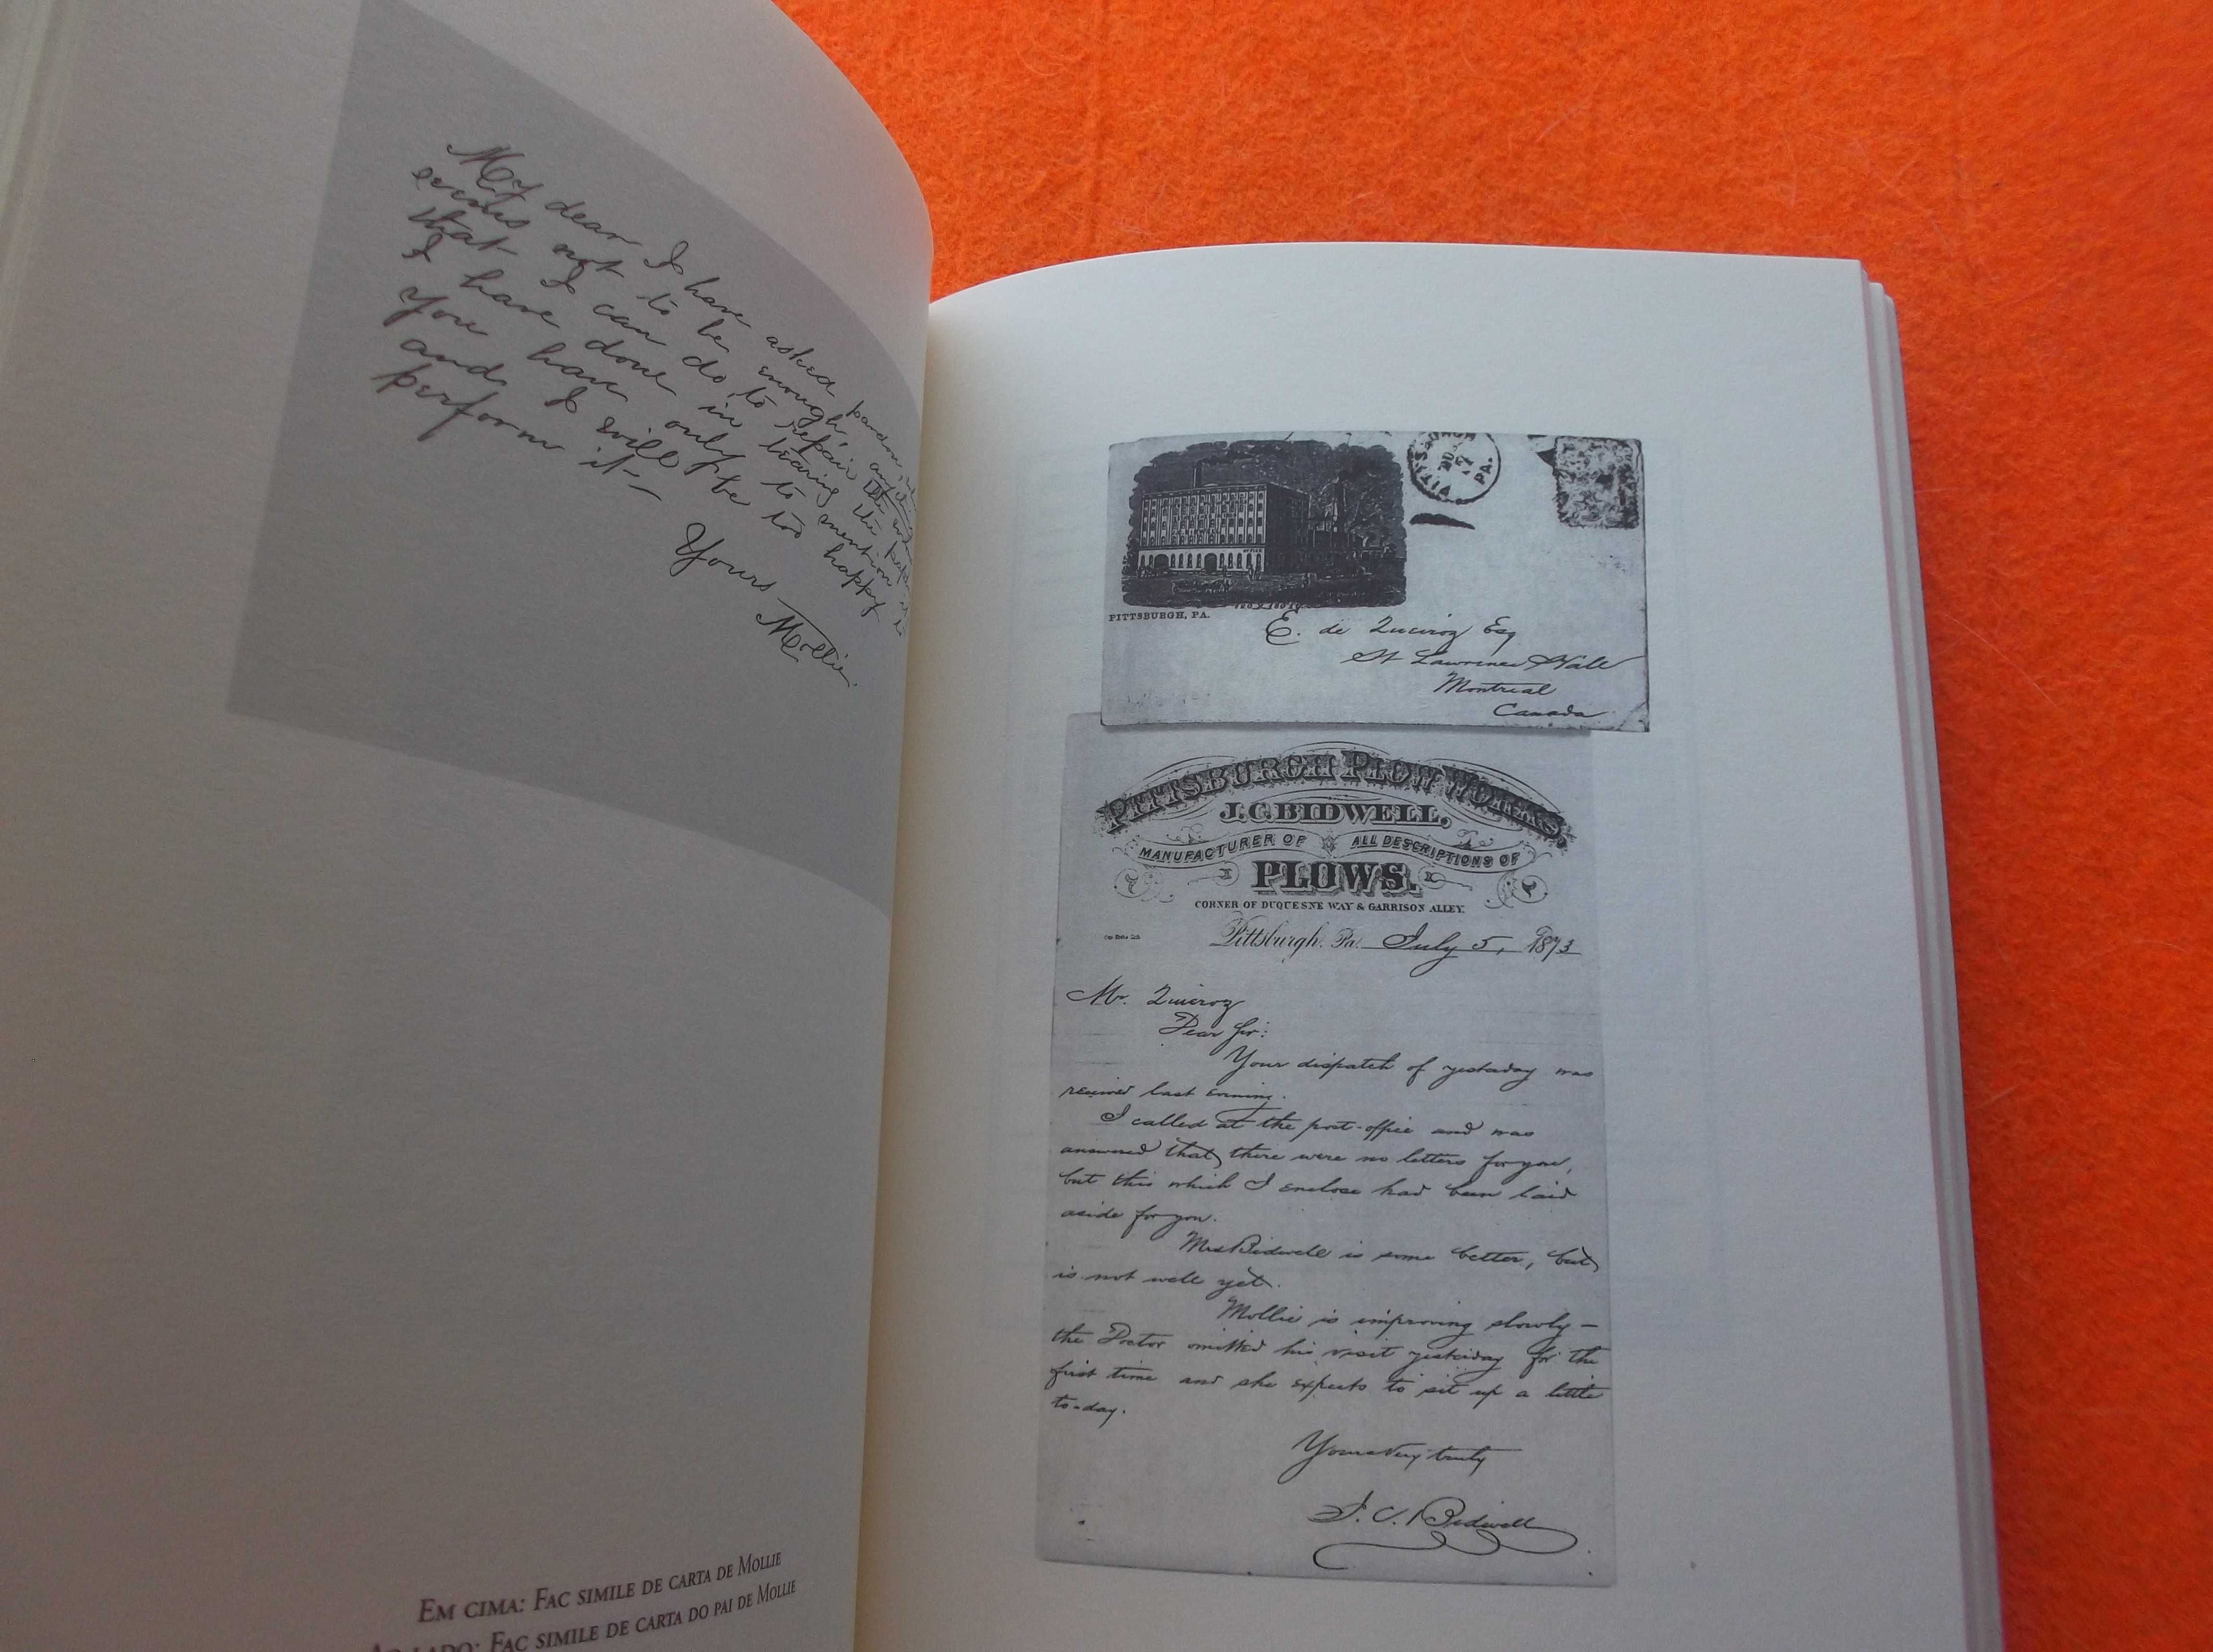 My dear I have asked pardon
seems not to be enough,
that I can do to repair the
I have done in tearing the
You have only to mention it
and I will be too happy to
perform it—
Yours
Mollie.
EM CIMA: FAC SIMILE DE CARTA DE MOLLIE
AO LADO: FAC SIMILE DE CARTA DO PAI DE MOLLIE
PITTSBURGH
PA.
OFFICE
PITTSBURGH, PA.
E. de Queiroz Esq
St Lawrence Hall
Montreal
Canada
PITTSBURGH PLOW WORKS.
J.C. BIDWELL,
MANUFACTURER OF ALL DESCRIPTIONS OF
PLOWS.
CORNER OF DUQUESNE WAY & GARRISON ALLEY.
Pittsburgh, Pa. July 5, 1873
Mr. Queiroz
Dear Sir:
Your dispatch of yesterday was
received last evening.
I called at the post-office and was
answered that there were no letters for you,
but this which I enclose had been laid
aside for you.
Mrs Bidwell is some better, but
is not well yet.
Mollie is improving slowly—
the Doctor omitted his visit yesterday for the
first time and she expects to sit up a little
to-day.
Yours very truly
J. C. Bidwell